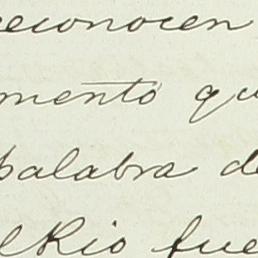 reconocen
mento qu
palabra de
el Rio fue